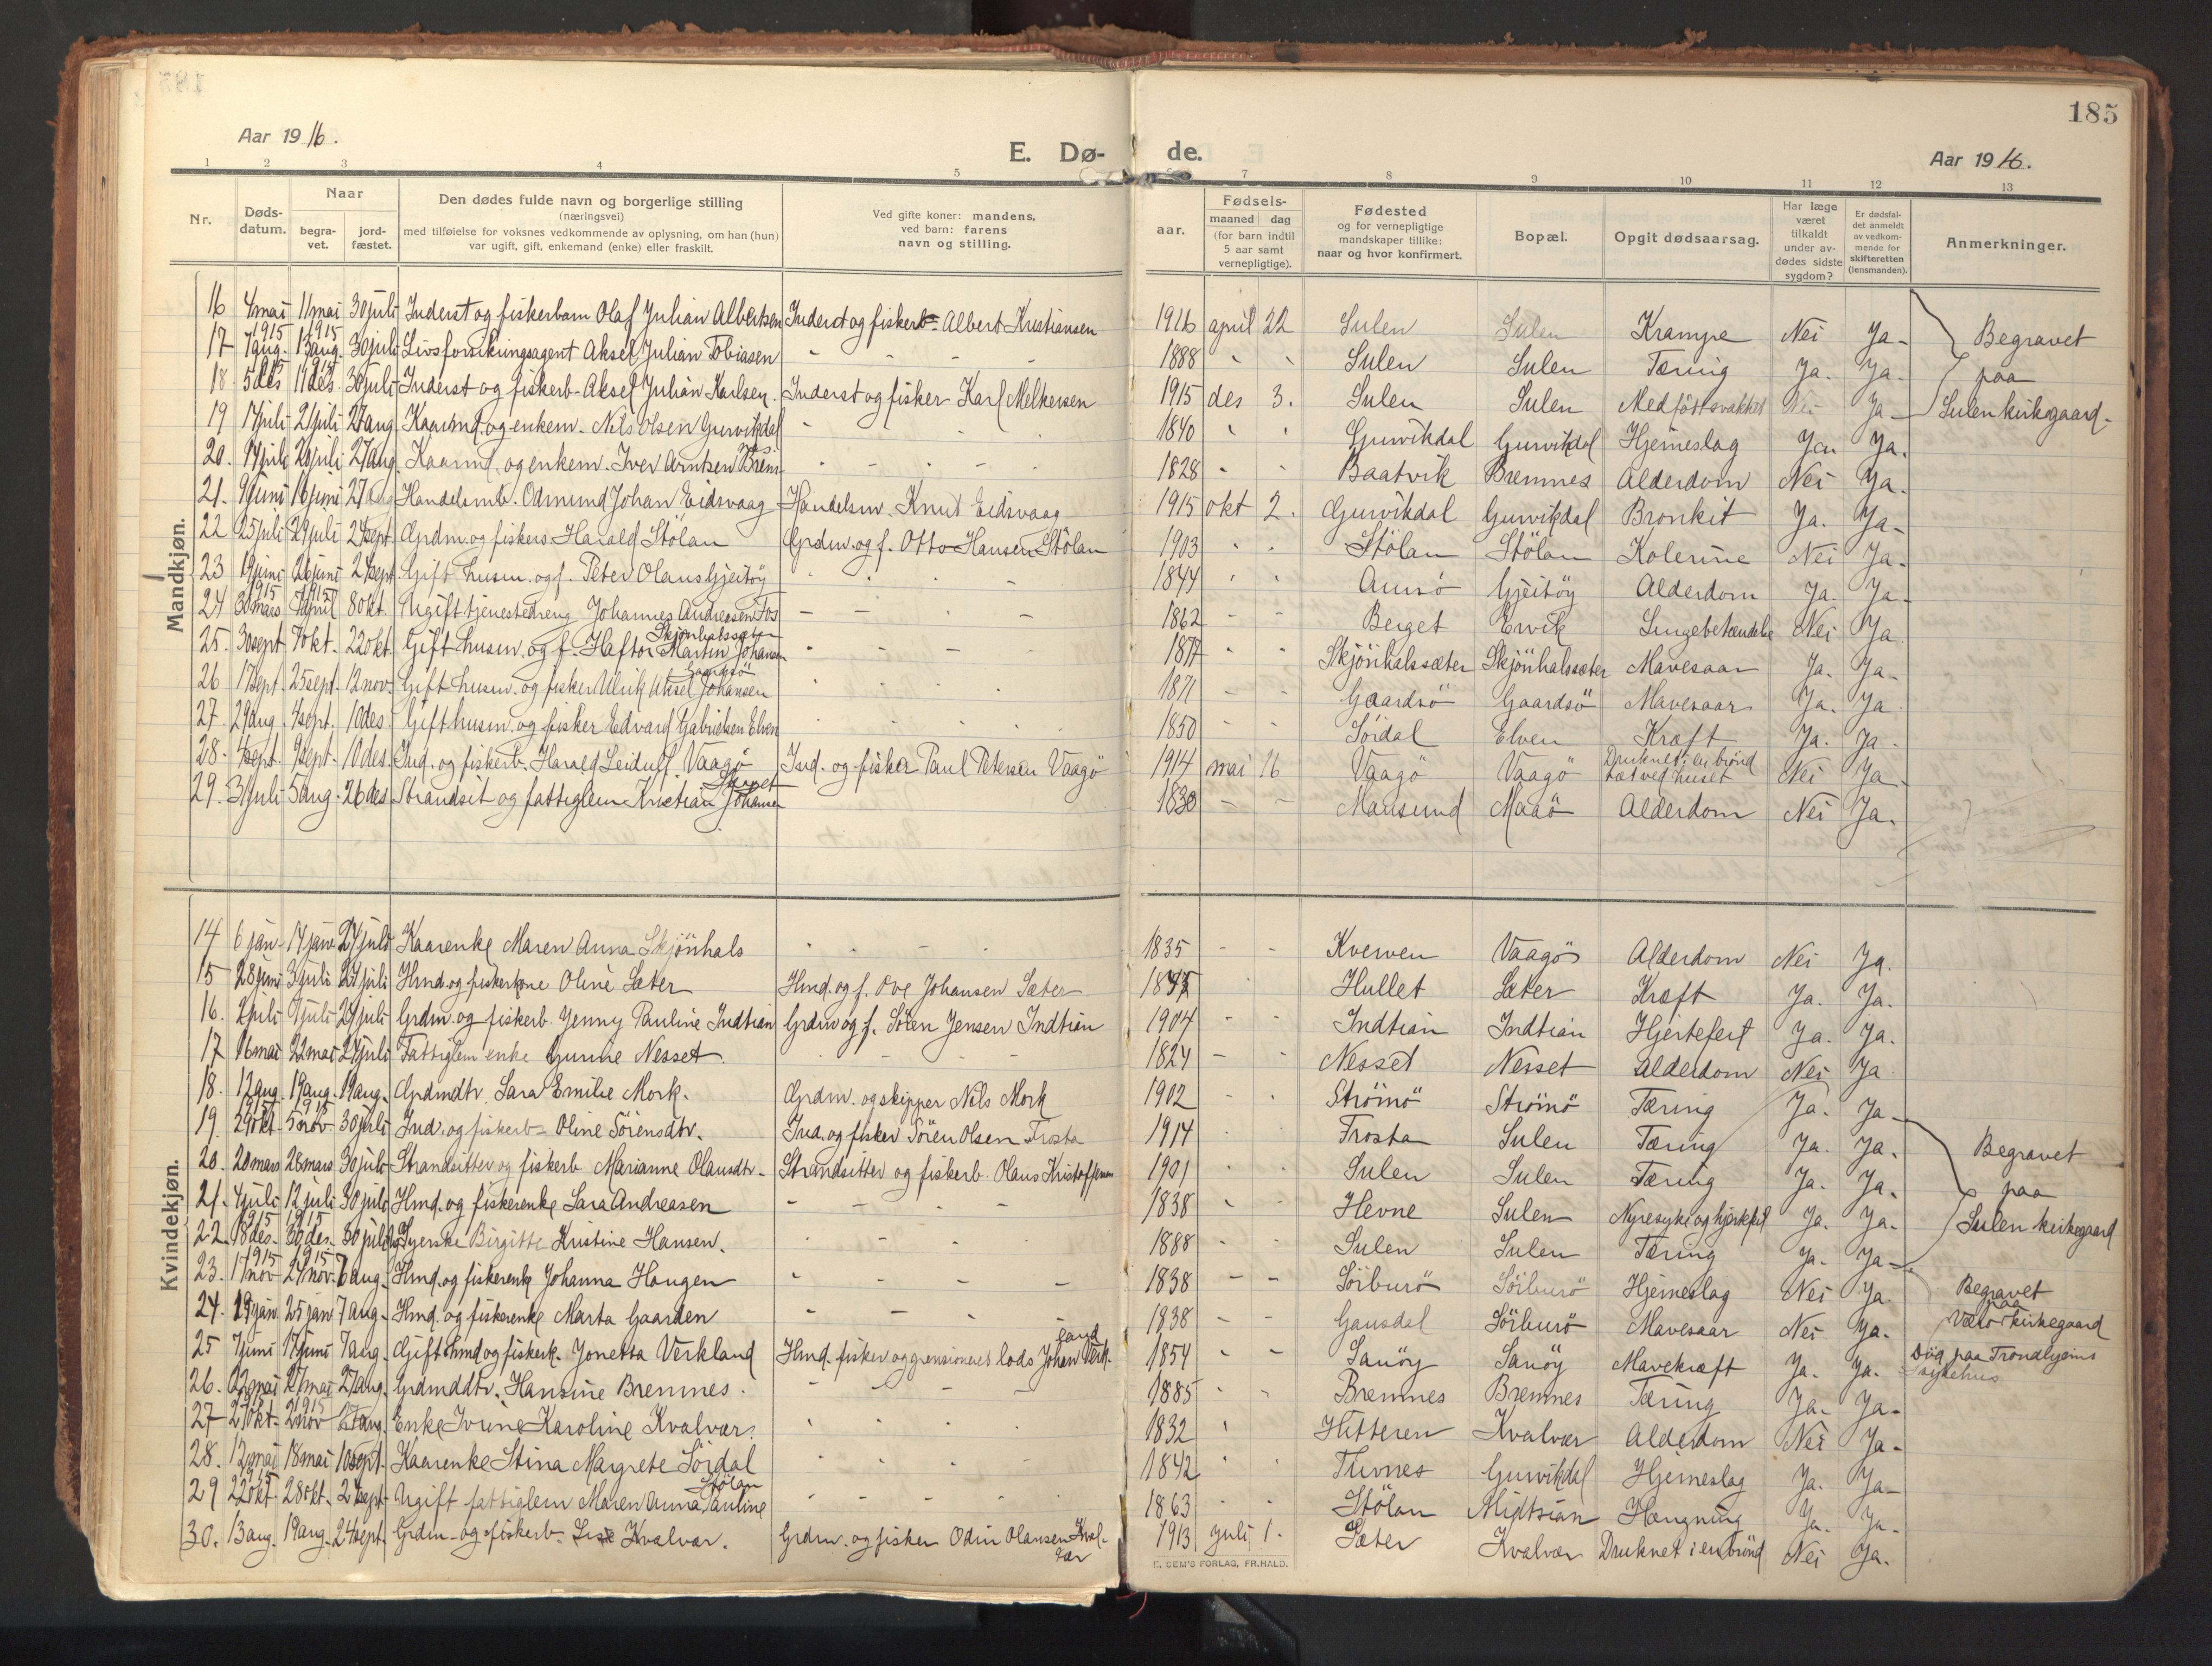 185
Aar 1916.
E. Dø- de.
Aar 1916.
1 2 3 4 5 7 8 9 10 11 12 13
Nr.
Døds-datum.
Naar
begra-vet.
jord-fæstet.
Den dødes fulde navn og borgerlige stilling
(næringsvei)
med tilføielse for voksnes vedkommende av oplysning, om han (hun)
var ugift, gift, enkemand (enke) eller fraskilt.
Ved gifte koner: mandens,
ved barn: farens
navn og stilling.
aar.
Fødsels-
maaned dag
(for barn indtil
5 aar samt
vernepligtige).
Fødested
og for vernepligtige
mandskaper tillike:
naar og hvor konfirmert.
Bopæl.
Opgit dødsaarsag.
Har læge
været
tilkaldt
under av-
dødes sidste
sygdom?
Er dødsfal-
det anmeldt
av vedkom-
mende for
skifteretten
(lensmanden).
Anmerkninger.
Mandkjøn.
16 4 mai 11 mai 30 juli Inderst og fiskerbarn Olaf Julian Albertsen Inderst og fisker Albert Kristiansen 1916 april 22 Sulen Sulen Krampe Nei Ja-
17 7 aug. 1915 13 aug. 1915 30 juli Livsforsikringsagent Aksel Julian Tobiasen - - - - 1888 - - Sulen Sulen Tæring Ja. Ja-
18. 5 des 1915 11 des. 1915 30 juli Inderst og fiskerb. Aksel Julian Karlsen. Inderst og fisker Karl Melkersen 1915 des 3. Sulen Sulen Medfött svakhet Nei Ja-
Begravet
paa
Sulen kirkegaard-
19 17 juli 21 juli 27 aug Kaarmd. og enkem. Nils Olsen Gurvikdal - - - 1840 - - Gurvikdal Gurvikdal Hjerneslag Ja Ja.
20. 14 juli 20 juli 27 aug. Kaarmd. og enkem. Iver Arntsen Bremnes - - - - 1828 - - Baatvik Bremnes Alderdom Nei Ja-
21. 9 juni 16 juni 27 aug Handelsmb. Odmund Johan Eidsvaag Handelsm. Knut Eidsvaag 1915 okt 2. Gurvikdal Gurvikdal Bronkit Ja. Ja-
22 25 juli 29 juli 24 sept. Grdm. og fiskers. Harald Stölan Grdm. og f. Otto Hansen Stölan 1903 - - Stölan Stölan Kolerine Nei Ja-
23 19 juni 26 juni 24 sept Gift husm. og f. Peter Olaus Gjeitöy - - - - 1844 - - Aunö Gjeitöy Alderdom Ja. Ja-
24 30 mars 1915 7 april 1915 8 okt. Ugift tjenestedreng Johannes Andreasen Fos - - - - 1862 - - Berget Ervik Lungebetændelse Nei Ja.
25. 30 sept 7 okt. 22 okt. Gift husm. og f. Haftor Martin Johansen Skjönhalssæter - - - - 1877 - - Skjönhalssæter Skjönhalssæter Mavesaar Ja. Ja-
26 17 sept. 25 sept. 12 nov. Gift husm. og fisker Ulrik Aksel Johansen Gaardsö - - - - 1871 - - Gaardsö Gaardsö Mavesaar Ja. Ja
27. 29 aug. 4 sept. 10 des. Gift husm. og fisker Edvard Gabrielsen Elven - - - - 1850 - - Sördal Elven Kræft Ja. Ja.
28. 4 sept. 9 sept. 10 des. Ind. og fiskerb. Harald Leidulf Vaagö Ind. og fisker Paul Petersen Vaagö 1914 mai 16 Vaagö Vaagö Druknet i en brönd tæt ved huset Nei Ja-
29. 31 juli 5 aug. 26 des Strandsit og fattiglem Kristian Johansen 1830 - - Mausund Maaö Alderdom Nei Ja.
Kvindekjøn.
14 6 jan. 14 jan 24 juli Kaarenke Maren Anna Skjönhals - - - - 1835 - - Kverven Vaagö Alderdom Nei Ja.
15 28 juni 3 juli 27 juli Hmd. og fiskerkone Oline Sæter Hmd. og f. Ove Johansen Sæter Hullet Sæter Kræft Ja. Ja.
16. 2 juli 7 juli 24 juli Grdm. og fiskerb. Jenny Pauline Indtian Grdm og f. Sören Jensen Indtian 1904 - - Indtian Indtian Hjertefeil Ja. Ja.
17 16 mai 22 mai 24 juli Fattiglem enke Gurine Nesset. - - - - 1824 - - Nesset Nesset Alderdom Nei Ja
18. 12 aug. 19 aug. 19 aug. Grdmdtr. Sara Emilie Mork. Grdm. og skipper Nils Mork 1902 - - Strömö Strömö Tæring Ja. Ja-
19. 29 okt. 1915 5 nov 1915 30 juli Ind. og fiskerb. Oline Sörensdtr. Ind. og fisker Sören Olsen Frosta 1914 Frosta Sulen Tæring Ja. Ja.
20. 20 mars 28 mars 30 juli Strandsitter og fiskerb. Marianne Olausdtr. Strandsitter og fiskerb. Olaus Kristoffersen 1901 - Sulen Sulen Tæring Ja. Ja.
21. 4 juli 12 juli 30 juli Hmd. og fiskerenke Sara Andreasen - - - - 1838 - - Hevne Sulen Nyresyke og hjertefeil Ja. Ja.
22. 18 des. 1915 30 des. 1915 30 juli Syerske Birgitte Kristine Hansen. - - - - 1888 - - Sulen Sulen Tæring Ja. Ja-
Begravet
paa
Sulen kirkegaard
23. 17 nov 1915 24 nov. 1915 6 aug. Hmd. og fiskerenk Johanna Haugen - - - - 1838 - - Sörburö Sörburö Hjerneslag Nei Ja.
24. 19 jan 25 jan 7 aug. Hmd. og fiskerenke Marta Gaarden - - - - 1838 - - Gausdal Sörburö Mavesaar Nei Ja.
Begravet
paa
Værö kirkegaard
25 7 juni 17 juni 7 aug. Gift hmd og fiskerk. Jonetta Verkland Hmd. fisker og pensioneret lods Johan Verkland 1854 - - Sanöy Sanöy Mavekræft Ja. Ja.
Död paa Trondhjems
sykehus
26. 22 mai 27 mai 27 aug. Grdmddtr. Hansine Bremnes. - - - - 1885 - - Bremnes Bremnes Tæring Ja. Ja-
27 27 okt. 1915 2 nov 1915 27 aug. Enke Ivine Karoline Kvalvær. - - - - 1832 - Hitteren Kvalvær Alderdom Nei Ja.
28. 12 mai 18 mai 10 sept. Kaarenke Stina Margrete Sördal - - - - 1842 - - Turnes Gurvikdal Hjerneslag Ja. Ja-
29 22 okt. 28 okt. 24 sept Ugift fattiglem Maren Anna Pauline Stölan - - - - 1863 - - Stölan Midtsian Hængning Ja. Ja.
30. 13 aug. 19 aug. 24 sept. Grdm. og fiskerb. Lise Kvalvær. Grdm. og fisker Odin Olausen Kvalvær 1913 juli 1. Sæter Kvalvær Druknet i en brönd Nei Ja.
E. SEM'S FORLAG, FR.HALD.